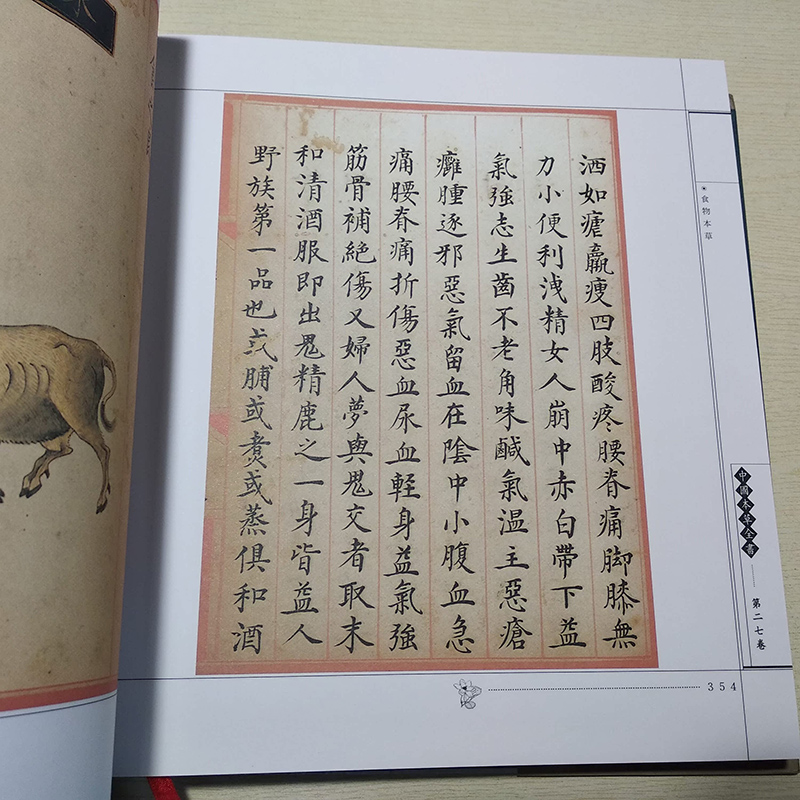 洒如瘧羸瘦四肢酸疼腰脊痛脚膝無
力小便利洩精女人崩中赤白帶下益
氣強志生齒不老角味鹹氣温主惡瘡
癰腫逐邪惡氣留血在陰中小腹血急
痛腰脊痛折傷惡血尿血輕身益氣強
筋骨補絶傷又婦人夢與鬼交者取末
和清酒服即出鬼精鹿之一身皆益人
野族第一品也或脯或煑或蒸俱和酒
食物本草
中國本草全書
第二七卷
354